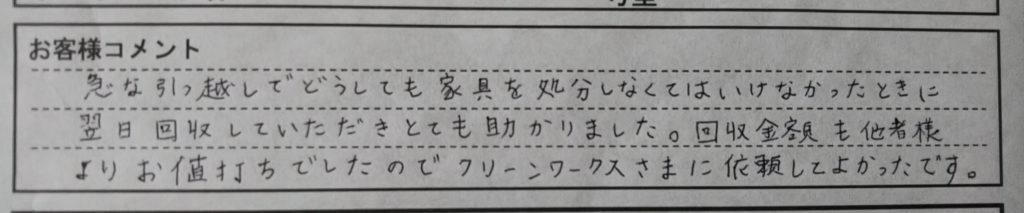 お客様コメント
急な引っ越しでどうしても家具を処分しなくてはいけなかったときに
翌日回収していただきとても助かりました。回収金額も他者様
よりお値打ちでしたのでクリーンワークスさまに依頼してよかったです。